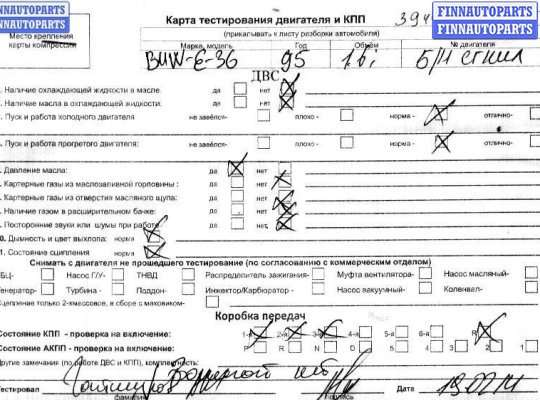 FINNAUTOPARTS
FINNAUTOPARTS
FINNAUTOPARTS
FINNAUTOPARTS
Место крепления
карты компрессии
Карта тестирования двигателя и КПП
394
(прикалывать к листу разборки автомобиля)
Марка, модель Год Объём № двигателя
BMW-E-36 95 1.6i Б/Н сгнил
ДВС
. Наличие охлаждающей жидкости в масле: да нет
. Наличие масла в охлаждающей жидкости: да нет
. Пуск и работа холодного двигателя не завёлся- плохо - норма - отлично-
. Пуск и работа прогретого двигателя: не завёлся- плохо - норма - отлично-
. Давление масла: да нет
. Картерные газы из маслозаливной горловины: да нет
. Картерные газы из отверстия масляного щупа: да нет
. Наличие газом в расширительном бачке: да нет
. Посторонние звуки или шумы при работе: да нет
0. Дымность и цвет выхлопа: норма
1. Состояние сцепления норма
Снимать с двигателя не прошедшего тестирование (по согласованию с коммерческим отделом)
БЦ- Насос Г/У- ТНВД Распределитель зажигания- Муфта вентилятора- Насос масляный-
Генератор- Турбина - Поддон- Инжектор/Карбюратор - Насос вакуумный- Коленвал-
Сцепление только 2-хмассовое, в сборе с маховиком-
Коробка передач
Состояние КПП - проверка на включение: 1-я 2-я 3-я 4-я 5-я 6-я R
Состояние АКПП - проверка на включение: P R N D 5 4 3 2 1
Другие замечания (по работе ДВС и КПП), комплектность:
Тестировал фамилия Подпись Дата 19.02.14